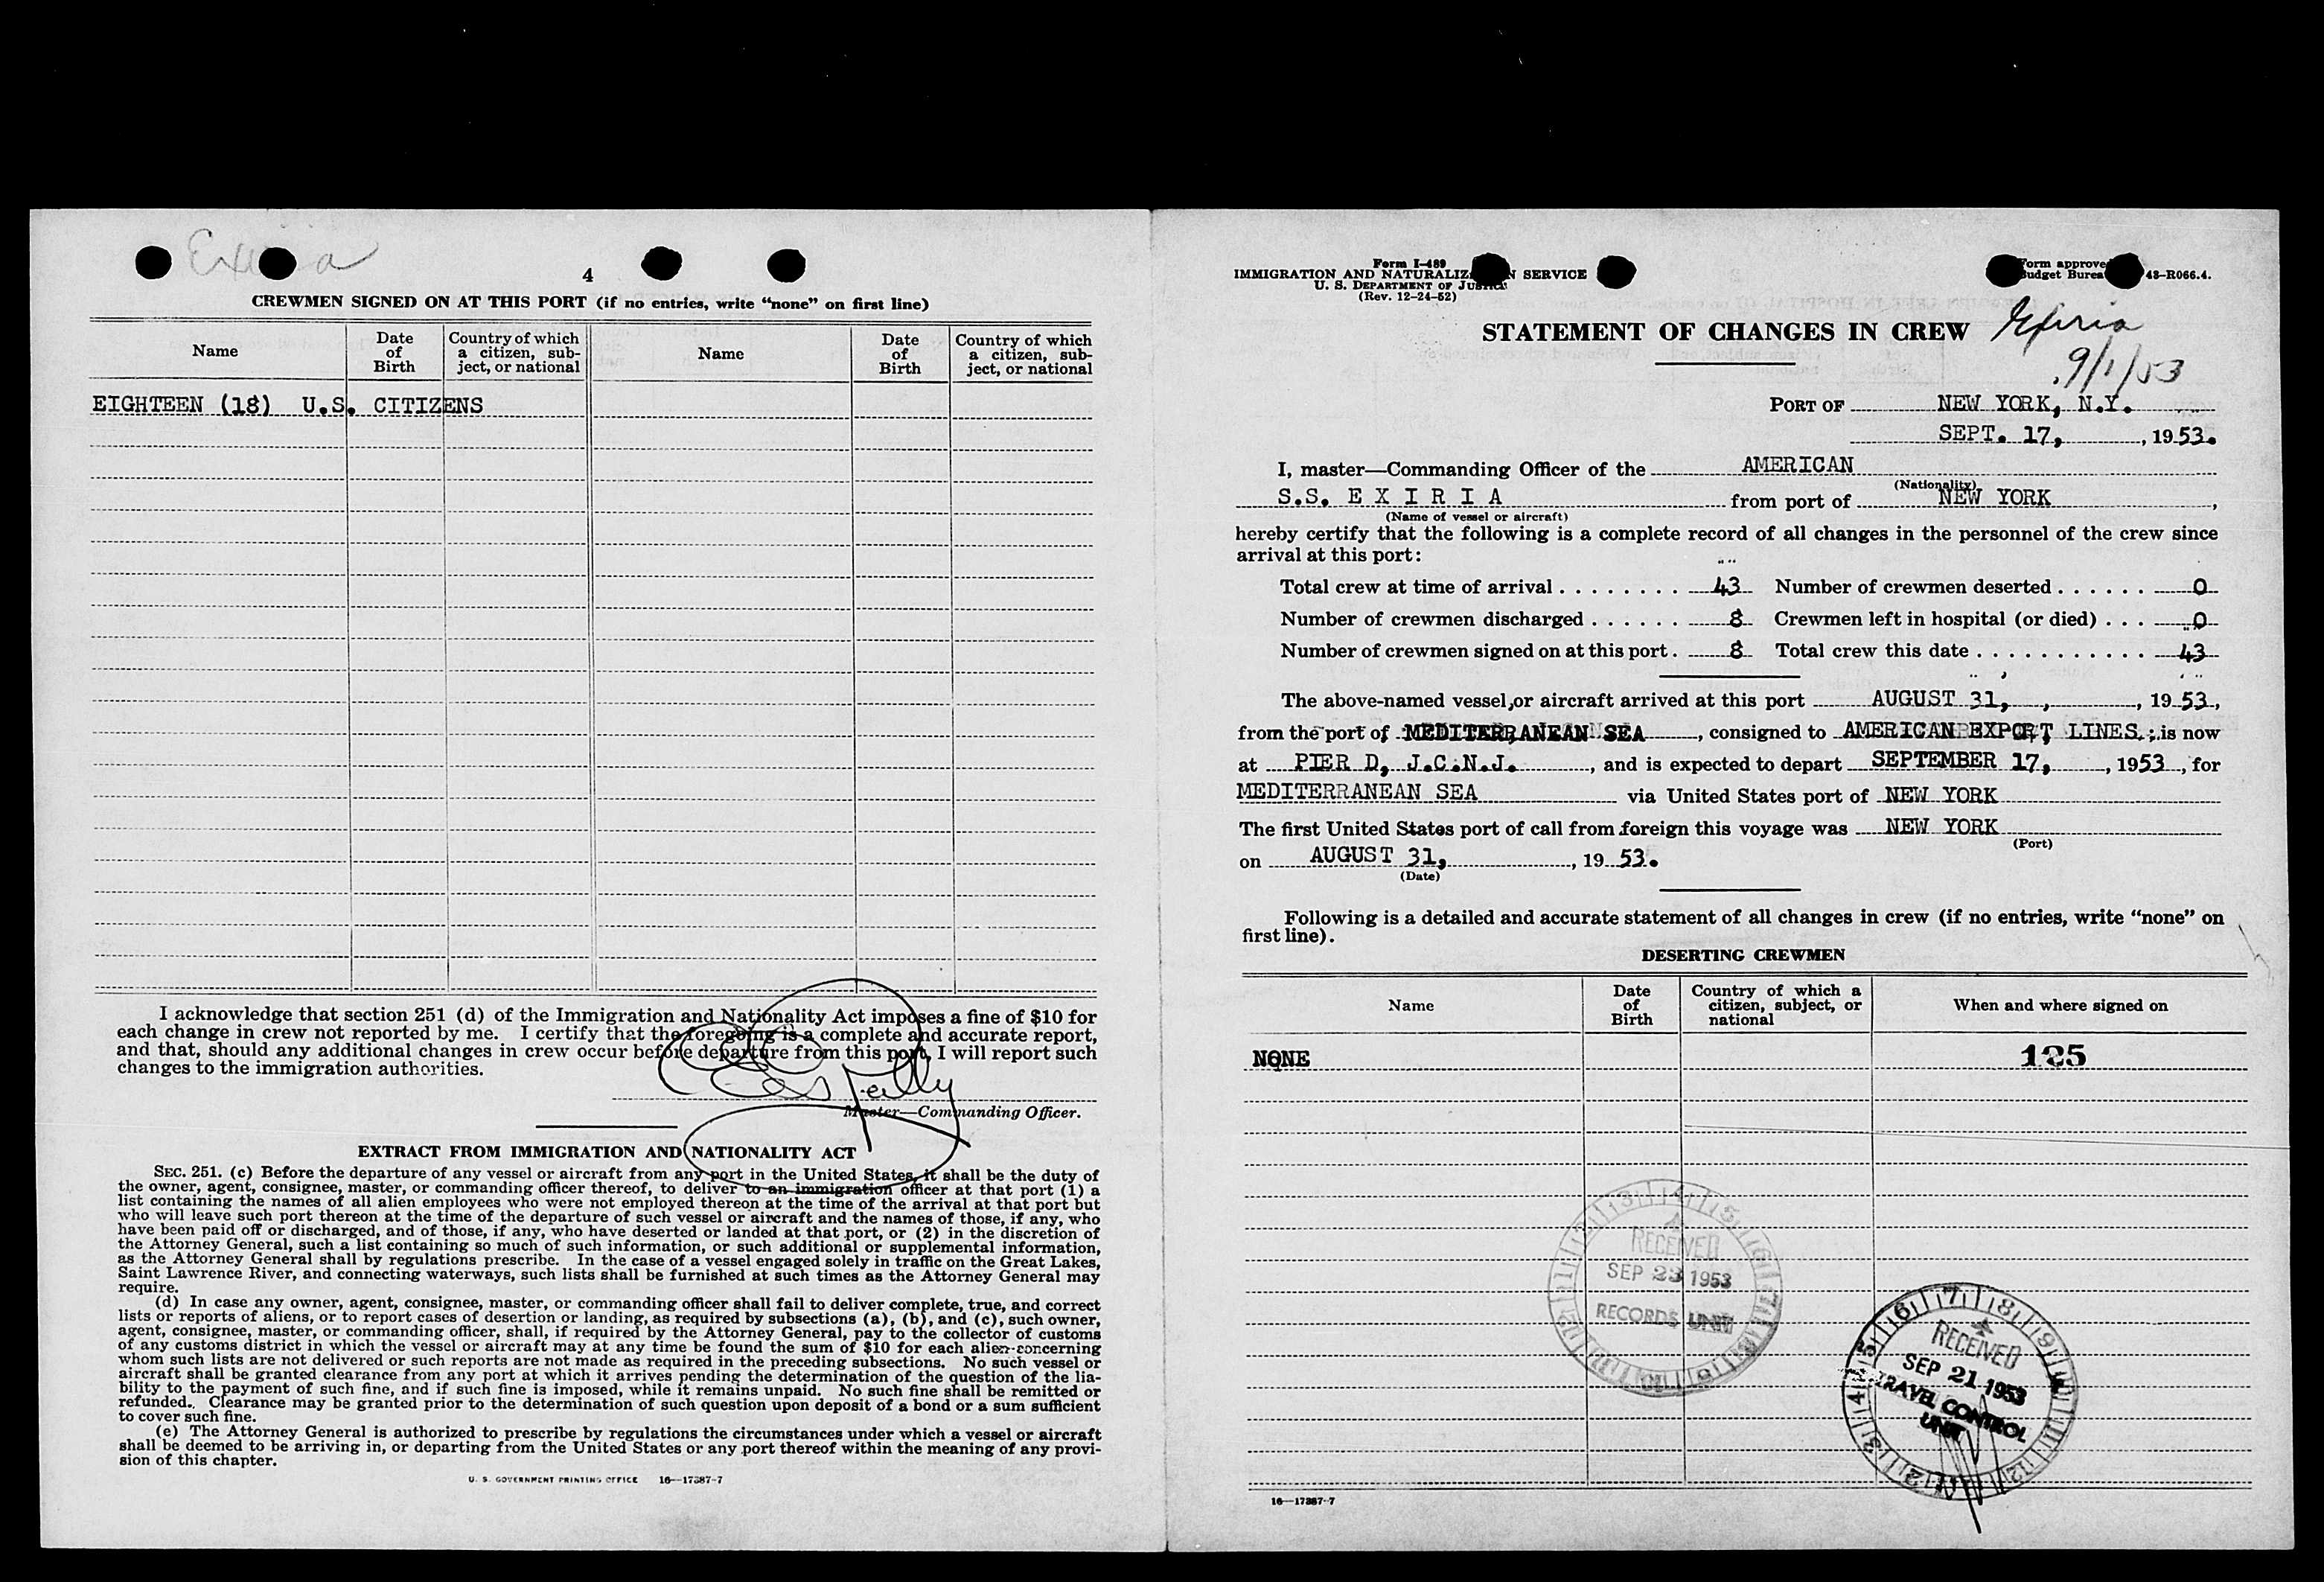 4
CREWMEN SIGNED ON AT THIS PORT (if no entries, write “none” on first line)
Name
Date of Birth
Country of which a citizen, sub-ject, or national
Name
Date of Birth
Country of which a citizen, sub-ject, or national
EIGHTEEN (18) U.S. CITIZENS
I acknowledge that section 251 (d) of the Immigration and Nationality Act imposes a fine of $10 for
each change in crew not reported by me. I certify that the foregoing is a complete and accurate report,
and that, should any additional changes in crew occur before departure from this port, I will report such
changes to the immigration authorities.
Master—Commanding Officer.
EXTRACT FROM IMMIGRATION AND NATIONALITY ACT
SEC. 251. (c) Before the departure of any vessel or aircraft from any port in the United States, it shall be the duty of
the owner, agent, consignee, master, or commanding officer thereof, to deliver to an immigration officer at that port (1) a
list containing the names of all alien employees who were not employed thereon at the time of the arrival at that port but
who will leave such port thereon at the time of the departure of such vessel or aircraft and the names of those, if any, who
have been paid off or discharged, and of those, if any, who have deserted or landed at that port, or (2) in the discretion of
the Attorney General, such a list containing so much of such information, or such additional or supplemental information,
as the Attorney General shall by regulations prescribe. In the case of a vessel engaged solely in traffic on the Great Lakes,
Saint Lawrence River, and connecting waterways, such lists shall be furnished at such times as the Attorney General may
require.
(d) In case any owner, agent, consignee, master, or commanding officer shall fail to deliver complete, true, and correct
lists or reports of aliens, or to report cases of desertion or landing, as required by subsections (a), (b), and (c), such owner,
agent, consignee, master, or commanding officer, shall, if required by the Attorney General, pay to the collector of customs
of any customs district in which the vessel or aircraft may at any time be found the sum of $10 for each alien concerning
whom such lists are not delivered or such reports are not made as required in the preceding subsections. No such vessel or
aircraft shall be granted clearance from any port at which it arrives pending the determination of the question of the lia-
bility to the payment of such fine, and if such fine is imposed, while it remains unpaid. No such fine shall be remitted or
refunded. Clearance may be granted prior to the determination of such question upon deposit of a bond or a sum sufficient
to cover such fine.
(e) The Attorney General is authorized to prescribe by regulations the circumstances under which a vessel or aircraft
shall be deemed to be arriving in, or departing from the United States or any port thereof within the meaning of any provi-
sion of this chapter.
U. S. GOVERNMENT PRINTING OFFICE 16—17387-7
Form I-489
IMMIGRATION AND NATURALIZ N SERVICE
U. S. DEPARTMENT OF JUSTICE
(Rev. 12-24-52)
Form approve
Budget Burea 43-R066.4.
STATEMENT OF CHANGES IN CREW
Exiria
9/1/53
PORT OF NEW YORK, N.Y.
SEPT. 17, , 1953.
I, master—Commanding Officer of the AMERICAN
(Nationality)
S.S. E X I R I A from port of NEW YORK ,
(Name of vessel or aircraft)
hereby certify that the following is a complete record of all changes in the personnel of the crew since
arrival at this port:
Total crew at time of arrival . . . . . . . . 43 Number of crewmen deserted . . . . . . 0
Number of crewmen discharged . . . . . . 8 Crewmen left in hospital (or died) . . . 0
Number of crewmen signed on at this port . 8 Total crew this date . . . . . . . . . . . 43
The above-named vessel or aircraft arrived at this port AUGUST 31, , 1953,
from the port of MEDITERRANEAN SEA , consigned to AMERICAN EXPORT LINES ; is now
at PIER D, J.C.N.J. , and is expected to depart SEPTEMBER 17, , 1953 , for
MEDITERRANEAN SEA via United States port of NEW YORK
The first United States port of call from foreign this voyage was NEW YORK
(Port)
on AUGUST 31, , 1953.
(Date)
Following is a detailed and accurate statement of all changes in crew (if no entries, write “none” on
first line).
DESERTING CREWMEN
Name
Date of Birth
Country of which a citizen, subject, or national
When and where signed on
NONE
125
RECEIVED
SEP 23 1953
RECORDS UNIT
RECEIVED
SEP 21 1953
TRAVEL CONTROL
UNIT
16—17387-7